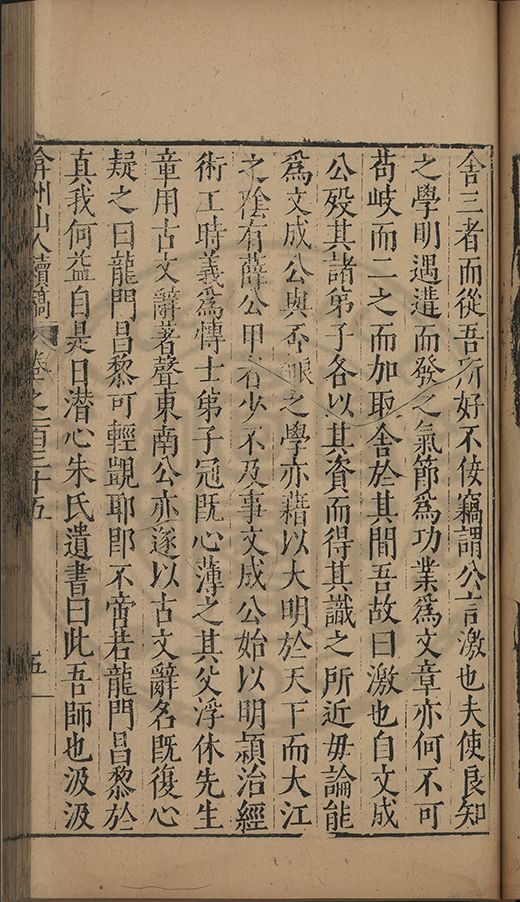 舍三者而從吾所好不佞竊謂公言激也夫使良知
之學明遇遣而發之氣節爲功業爲文章亦何不可
苟岐而二之而加取舍於其間吾故曰激也自文成
公殁其諸弟子各以其資而得其識之所近毋論能
爲文成公與否師之學亦藉以大明於天下而大江
之陰有薛公甲者少不及事文成公始以明穎治經
術工時義爲博士弟子冠既心薄之其父浮休先生
章用古文辭著聲東南公亦遂以古文辭名既復心
疑之曰龍門昌黎可輕覬耶即不啻若龍門昌黎於
真我何益自是日潛心朱氏遺書曰此吾師也汲汲
弇州山人續稿 卷之一百三十五 五